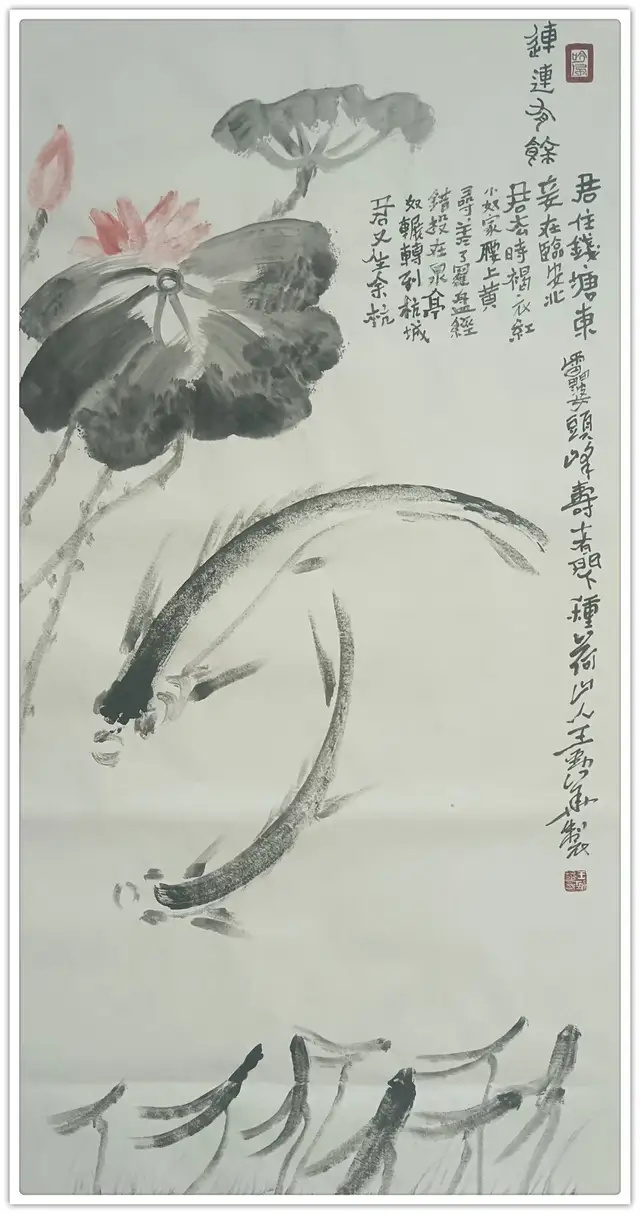 連連有餘
君住錢塘東
妾在臨安北
君去時褐衣紅
小奴家腰上黄
尋差了羅盤經
錯投在泉亭
奴輾轉到杭城
君又生余杭
頭峰壽者 種荷山人王 製